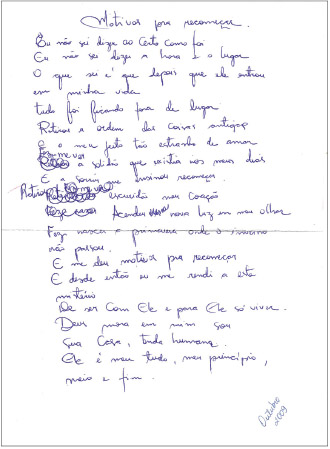 Motivos pra recomeçar.
Eu não sei dizer ao certo como foi
Eu não sei dizer a hora e o lugar
O que sei é que depois que ele entrou
em minha vida
tudo foi ficando fora de lugar
Retirou a ordem das coisas antigas
E o meu jeito tão estranho de amar
a solidão que existia nos meus dias
E a sorrir que ensinou recomeçar.
escuridão meu coração
Acendeu nova luz em meu olhar
Fez nascer a primavera onde o inverno
não passou.
E me deu motivos pra recomeçar
E desde então eu me rendi a este
mistério
De ser com Ele e para Ele só viver.
Deus mora em mim sou
sua casa, tenda humana.
Ele é meu tudo, meu princípio,
meio e fim.
Outubro
2009